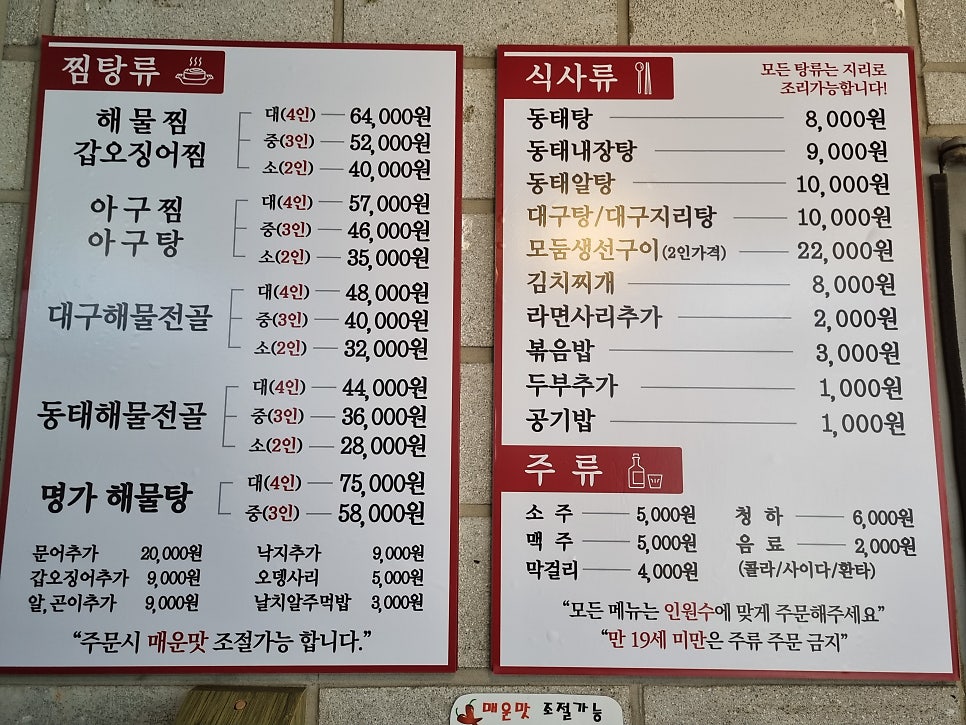 찜탕류
해물찜
갑오징어찜
대(4인) 64,000원
중(3인) 52,000원
소(2인) 40,000원
아구찜
아구탕
대(4인) 57,000원
중(3인) 46,000원
소(2인) 35,000원
대구해물전골
대(4인) 48,000원
중(3인) 40,000원
소(2인) 32,000원
동태해물전골
대(4인) 44,000원
중(3인) 36,000원
소(2인) 28,000원
명가 해물탕
대(4인) 75,000원
중(3인) 58,000원
문어추가 20,000원 낙지추가 9,000원
갑오징어추가 9,000원 오뎅사리 5,000원
알,곤이추가 9,000원 날치알주먹밥 3,000원
“주문시 매운맛 조절가능 합니다.”
식사류
모든 탕류는 지리로
조리가능합니다!
동태탕 8,000원
동태내장탕 9,000원
동태알탕 10,000원
대구탕/대구지리탕 10,000원
모둠생선구이(2인가격) 22,000원
김치찌개 8,000원
라면사리추가 2,000원
볶음밥 3,000원
두부추가 1,000원
공기밥 1,000원
주류
소주 5,000원 청하 6,000원
맥주 5,000원 음료 2,000원
막걸리 4,000원 (콜라/사이다/환타)
“모든 메뉴는 인원수에 맞게 주문해주세요”
“만 19세 미만은 주류 주문 금지”
매운맛 조절가능